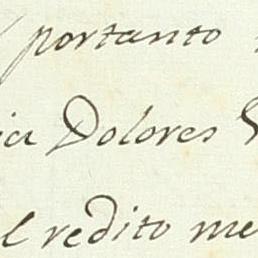 portanto
Dolores
el redito me